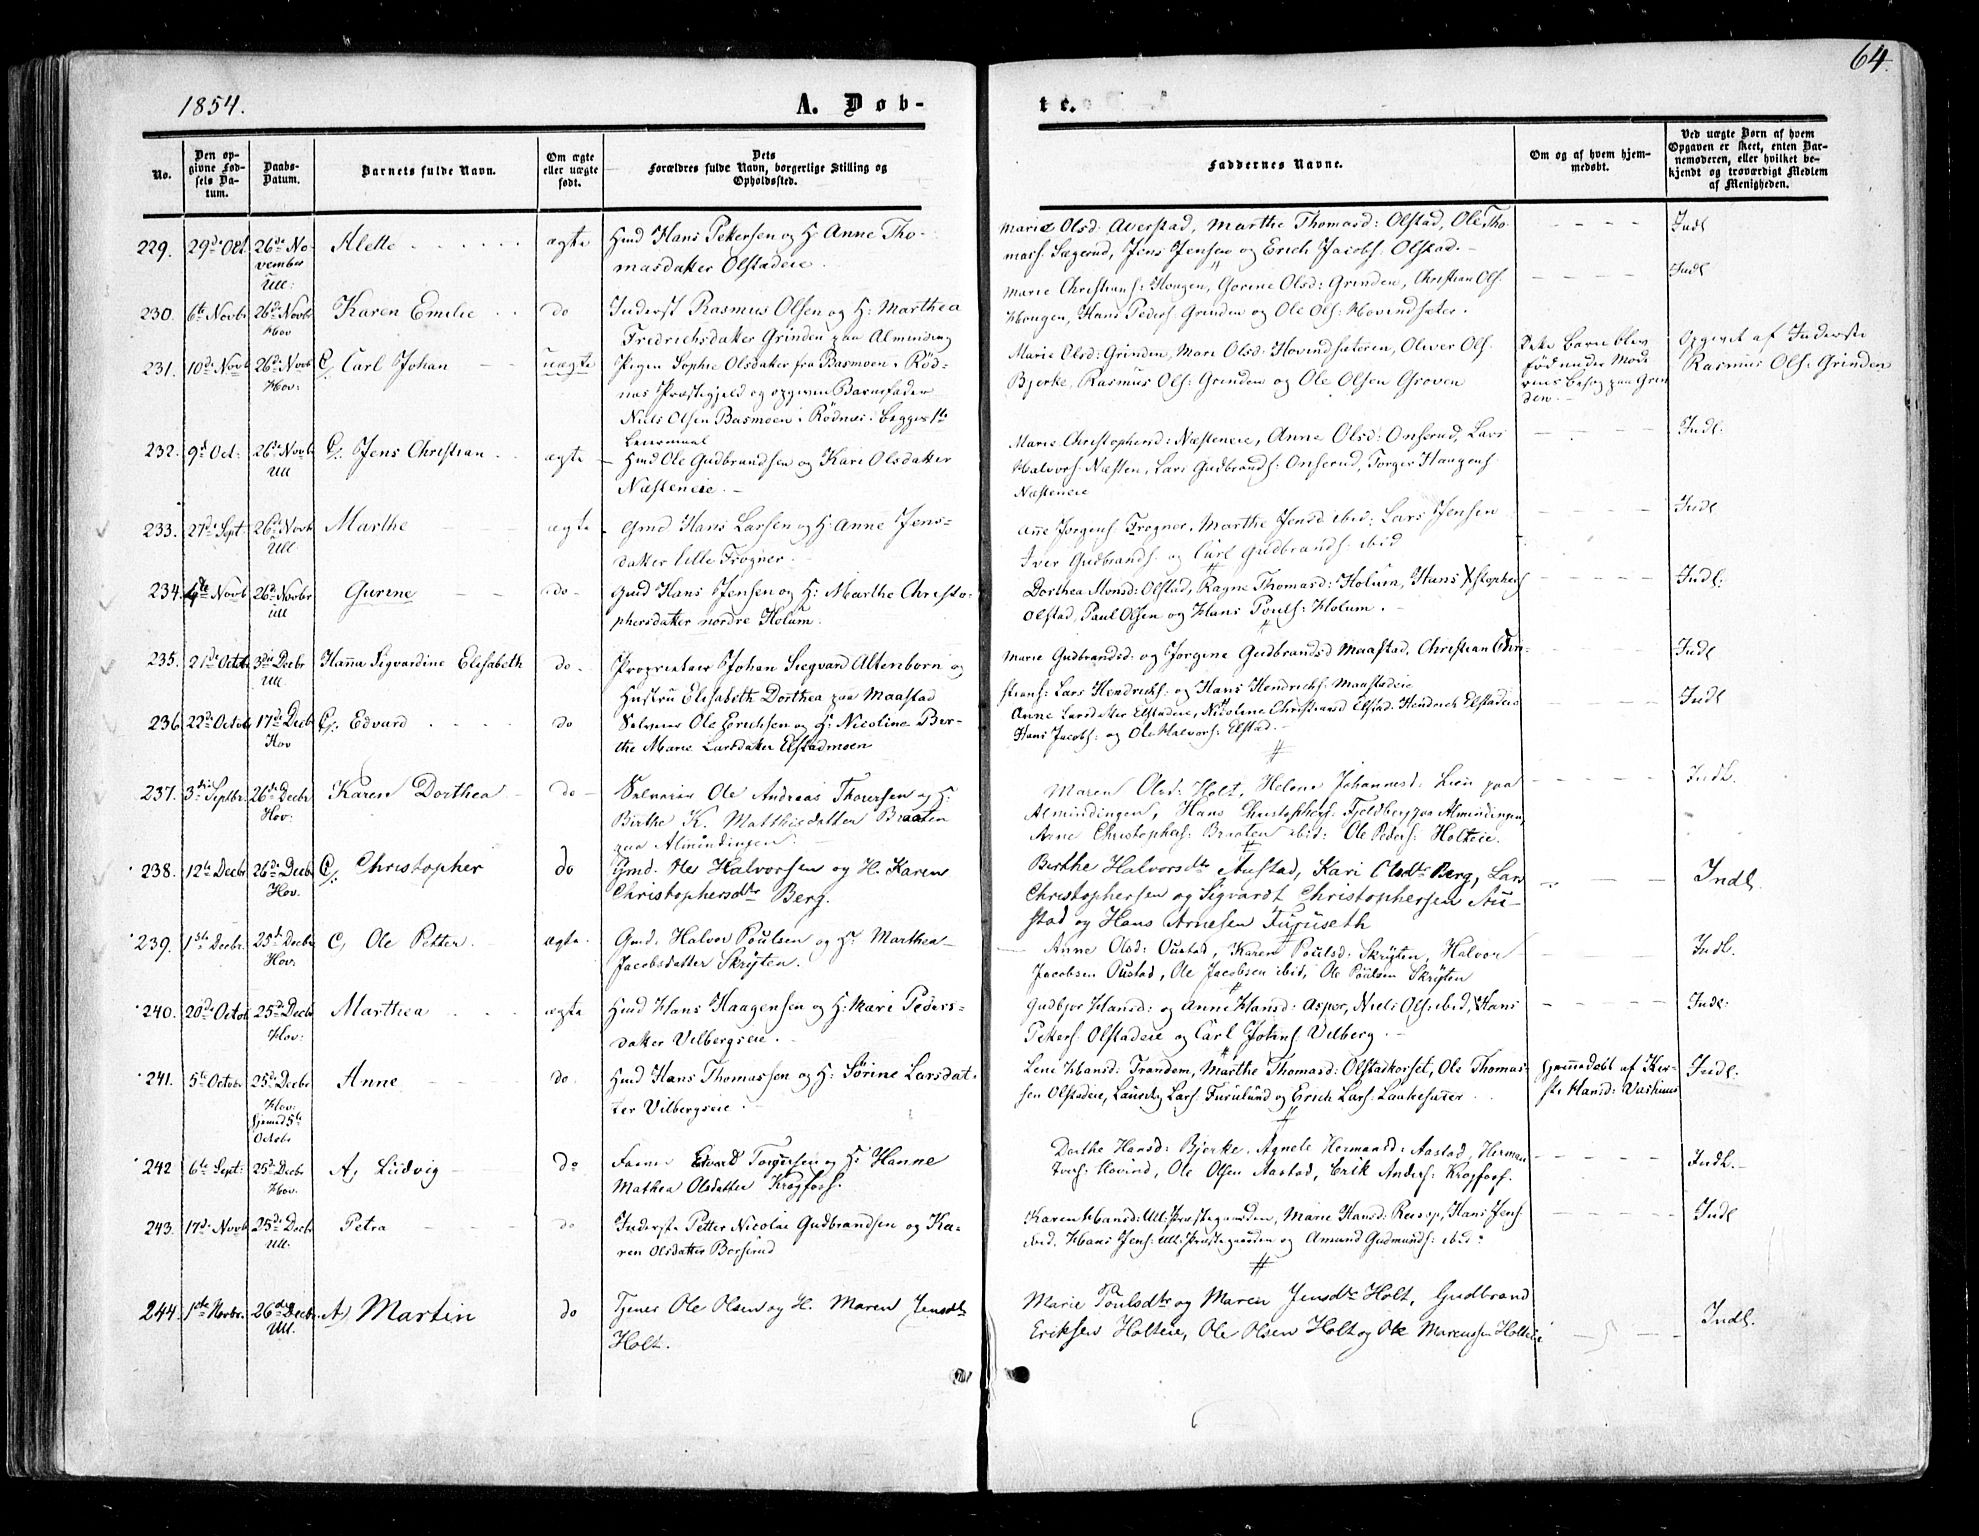 64.
1854.
A. Døb-
te.
No.
Den op-
givne Fød-
sels Da-
tum.
Daabs-
Datum.
Barnets fulde Navn.
Om ægte
eller uægte
født.
Dets
Forældres fulde Navn, borgerlige Stilling og
Opholdssted.
Faddernes Navne.
Om og af hvem hjem-
medøbt.
Ved uægte Børn af hvem
Opgaven er skeet, enten Bar-
nemoderen, eller hvilket be-
kjendt og troværdigt Medlem
af Menigheden.
229. 29de Oct 26de No- Alette ægte Hmd Hans Petersen og H: Anne Tho-
vember
Ull: masdatter Olstadeie.
Marie Olsd: Averstad, Marthe Thomasd: Olstad, Ole Tho-
mass. Sægerud, Jens Jensen og Erich Jacobs: Olstad.
Indl
230. 6te Novbr 26de Novbr Karen Emilie do Inderst Rasmus Olsen og H: Marthea
Hov
Fredrichsdatter Grinden paa Alminding
Marie Christians: Hougen, Gorine Olsd: Grinden, Christian Ols.
Hougen, Hans Peders. Grinden og Ole Ols: Hovindsæter.
Indl
231. 10de Novb 26de Novb C, Carl Johan uægte Pigen Sophie Olsdatter fra Basmoen i Rød-
Hov:
næs Præstegjeld og opgiven Barnefader
Niels Olsen Basmoen i Rødnæs. begges 1te
Leiermaal
Marie Olsd: Grinden, Mari Olsd: Hovindsæteren, Oliver Ols.
Bjerke, Rasmus Ols: Grinden og Ole Olsen Groven
Dette Barn blev
fød under Mode
rens besøg paa Grin
den.
Opgivet af Inderste
Rasmus Ols: Grinden
232. 9d Oct: 26de Novb C,. Jens Christian ægte Hmd Ole Gudbrandsen og Kari Olsdatter
Ull
Næsteneie.
Marie Christophersd: Næsteneie, Anne Olsd: Onserud, Lars
Halvors: Næsten, Lars Gudbrands: Onserud, Torger Haagens:
Næsteneie
Indl:
233. 27de Sept: 26de Novb Marthe ægte Gmd Hans Larsen og H: Anne Jens-
Ull
datter lille Frogner.
Anne Jørgens Frogner, Marthe Jensd ibid: Lars Jensen
Iver Gudbrands: og Carl Gudbrands: ibid
Indl
234. 4de Novb 26de Novbr Gurine do Gmd Hans Jensen og H: Marthe Christo-
ull
phersdatter nordre Holum.
Dorthea Monsd: Olstad, Ragne Thomasd: Holum, Hans Xstophers
Olstad, Paul Olsen og Hans Pouls: Holum.
Indl:
235. 21de Octb 3die Decbr Hanna Sigvardine Elisabeth do. Proprietair Johan Siegvard Altenborn og
Ull
Hustru Elisabeth Dorthea paa Maastad
Marie Gudbrandsd: og Jørgine Gudbrandsd Maastad, Christian Chri-
stians: Lars Hendrichs: og Hans Hendrichs: Maastadeie
Indl
236. 22de Octob 17de Decb C,. Edvard do Selveier Ole Erichsen og H: Nicoline Ber-
Hov
the Marie Larsdatter Elstadmoen
Anne Larsdatter Elstadeie, Nicoline Christiansd Elstad, Hendrich Elstadeie
Hans Jacobs: og Ole Halvors: Elstad.
Indl
237. 3die Septbr. 26de Decbr Karen Dorthea do Selveier Ole Andreas Thorersen og H:
Hov:
Birthe K. Matthisdatter Braaten
paa Almindingen.
Maren Olsd: Holt, Helene Johannesd: Lien paa
Almindingen, Hans Christophers: Fjeldberg paa Almindingen,
Arne Christophers: Braaten ibid: Ole Peders: Holteie.
Indl.
238. 12te Decbr 26de Decbr C,. Christopher do Gmd. Ole Halvorsen og H. Karen
Hov.
Christophersdtr Berg.
Berthe Halvorsdtr Austad, Kari Olsdtr Berg, Lars
Christophersen og Sigvardt Christophersen Au-
stad og Hans Arnesen Furuseth
Indl.
239. 1ste Decbr. 25d Decbr C, Ole Petter. ægte. Gmd. Halvor Poulsen og H: Marthea
Hov:
Jacobsdatter Skryten.
Anne Olsd: Oustad, Karen Poulsd. Skryten, Halvor
Jacobsen Oustad, Ole Jacobsen ibid, Ole Poulsen Skryten
Indl.
240. 20de Octob 25de Decbr Marthea ægte Hmd Hans Haagensen og H: Mari Peders-
Hov:
datter Vilbergseie.
Gudbjor Hansd: og Anne Hansd: Asper, Niels Ols: ibid, Hans
Peters. Olstadeie og Carl Johns: Vilberg.
Indl:
241. 5te Octobr 25de Decbr Anne do. Hmd Hans Thomassen og H: Sørine Larsdat-
Hov:
hjemd 5te
Octobr
ter Vilbergseie.
Lene Hansd: Trandem, Marthe Thomasd: Olstadkorset, Ole Thomas-
sen Olstadeie, Lauritz Lars. Furulund og Erich Lars: Lautesæter.
Hjemmedøbt af Kir-
sti Hansd:
Indl:
242 6te Sept: 25de Decbr A, Ludvig do Edvard Torgersen og H: Hanne
Hov.
Mathea Olsdatter Krogfoss.
Dorthe Hansd: Bjerke, Agnete Hermansd: Aastad, Herman
Ivers: Hovind, Ole Olsen Aastad, Erik Anders: Krogfoss.
Indl.
243. 17de Novb 25de Decb Petra do Inderste Petter Nicolai Gudbrandsen og Ka-
Ull.
ren Olsdatter Borserud
Karen Hansd: Ull: Præstegaarden, Marie Hansd: Risop, Hans Jens
ibid. Hans Jens: Ull: Præstegaarden og Amund Gudmunds: ibid:
Indl
244. 1ste Novbr. 26de Decbr. A) Martin do Tjener Ole Olsen og H. Maren Jensdtr
Ull.
Holt.
Marie Poulsdtr og Maren Jensdtr Holt, Gudbrand
Eriksen Holteie, Ole Olsen Holt og Ole Marcussen Holteie
Indl.